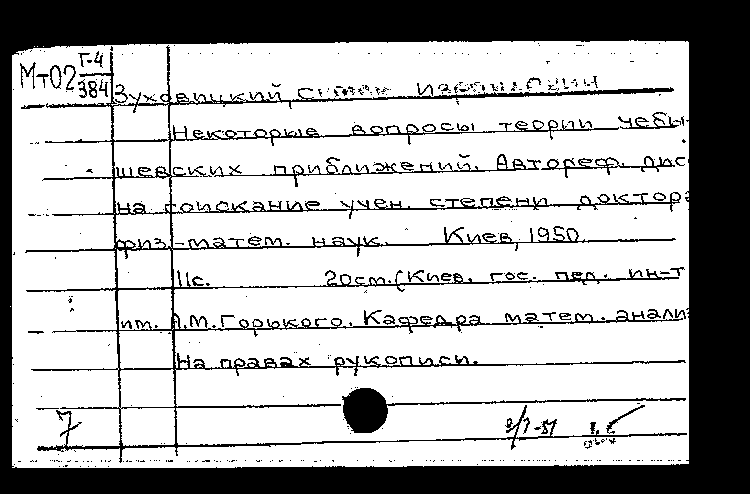 Мт02 Г-4
384
Зуховицкий, Семен Израилевич
Некоторые вопросы теории чебы-
шевских приближений. Автореф. дис
на соискание учен. степени доктора
физ.-матем. наук. Киев, 1950.
11с. 20см. (Киев. гос. пед. ин-т
им. А.М.Горького. Кафедра матем. анализ
На правах рукописи.
7